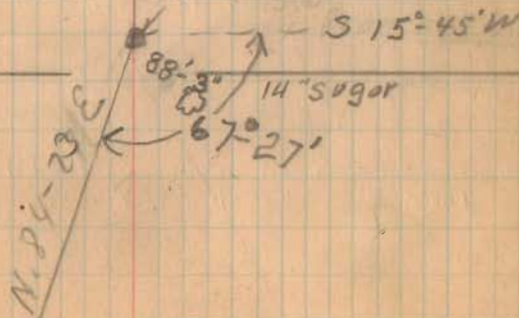 S 15°-45' W
88'-3"
14" sugar
67°-27'
N. 84-23 E